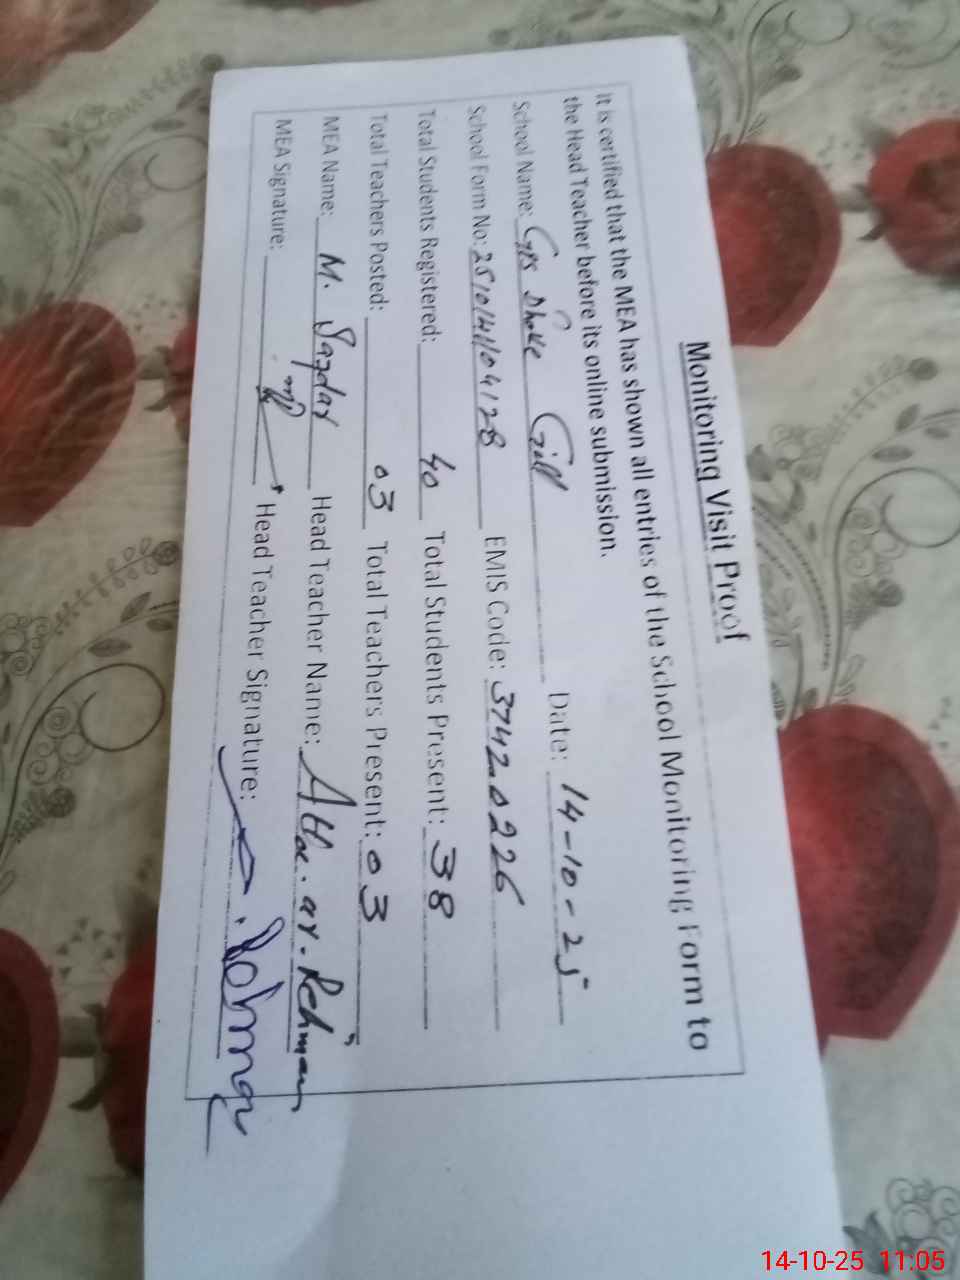 Monitoring Visit Proof
It is certified that the MEA has shown all entries of the School Monitoring Form to
the Head Teacher before its online submission.
School Name: GPS Dhoke Gill Date: 14-10-25
School Form No: EMIS Code: 37420226
Total Students Registered: 40 Total Students Present: 38
Total Teachers Posted: 03 Total Teachers Present: 03
MEA Name: M. Head Teacher Name: Rehman
MEA Signature: Head Teacher Signature:
14-10-25 11:05